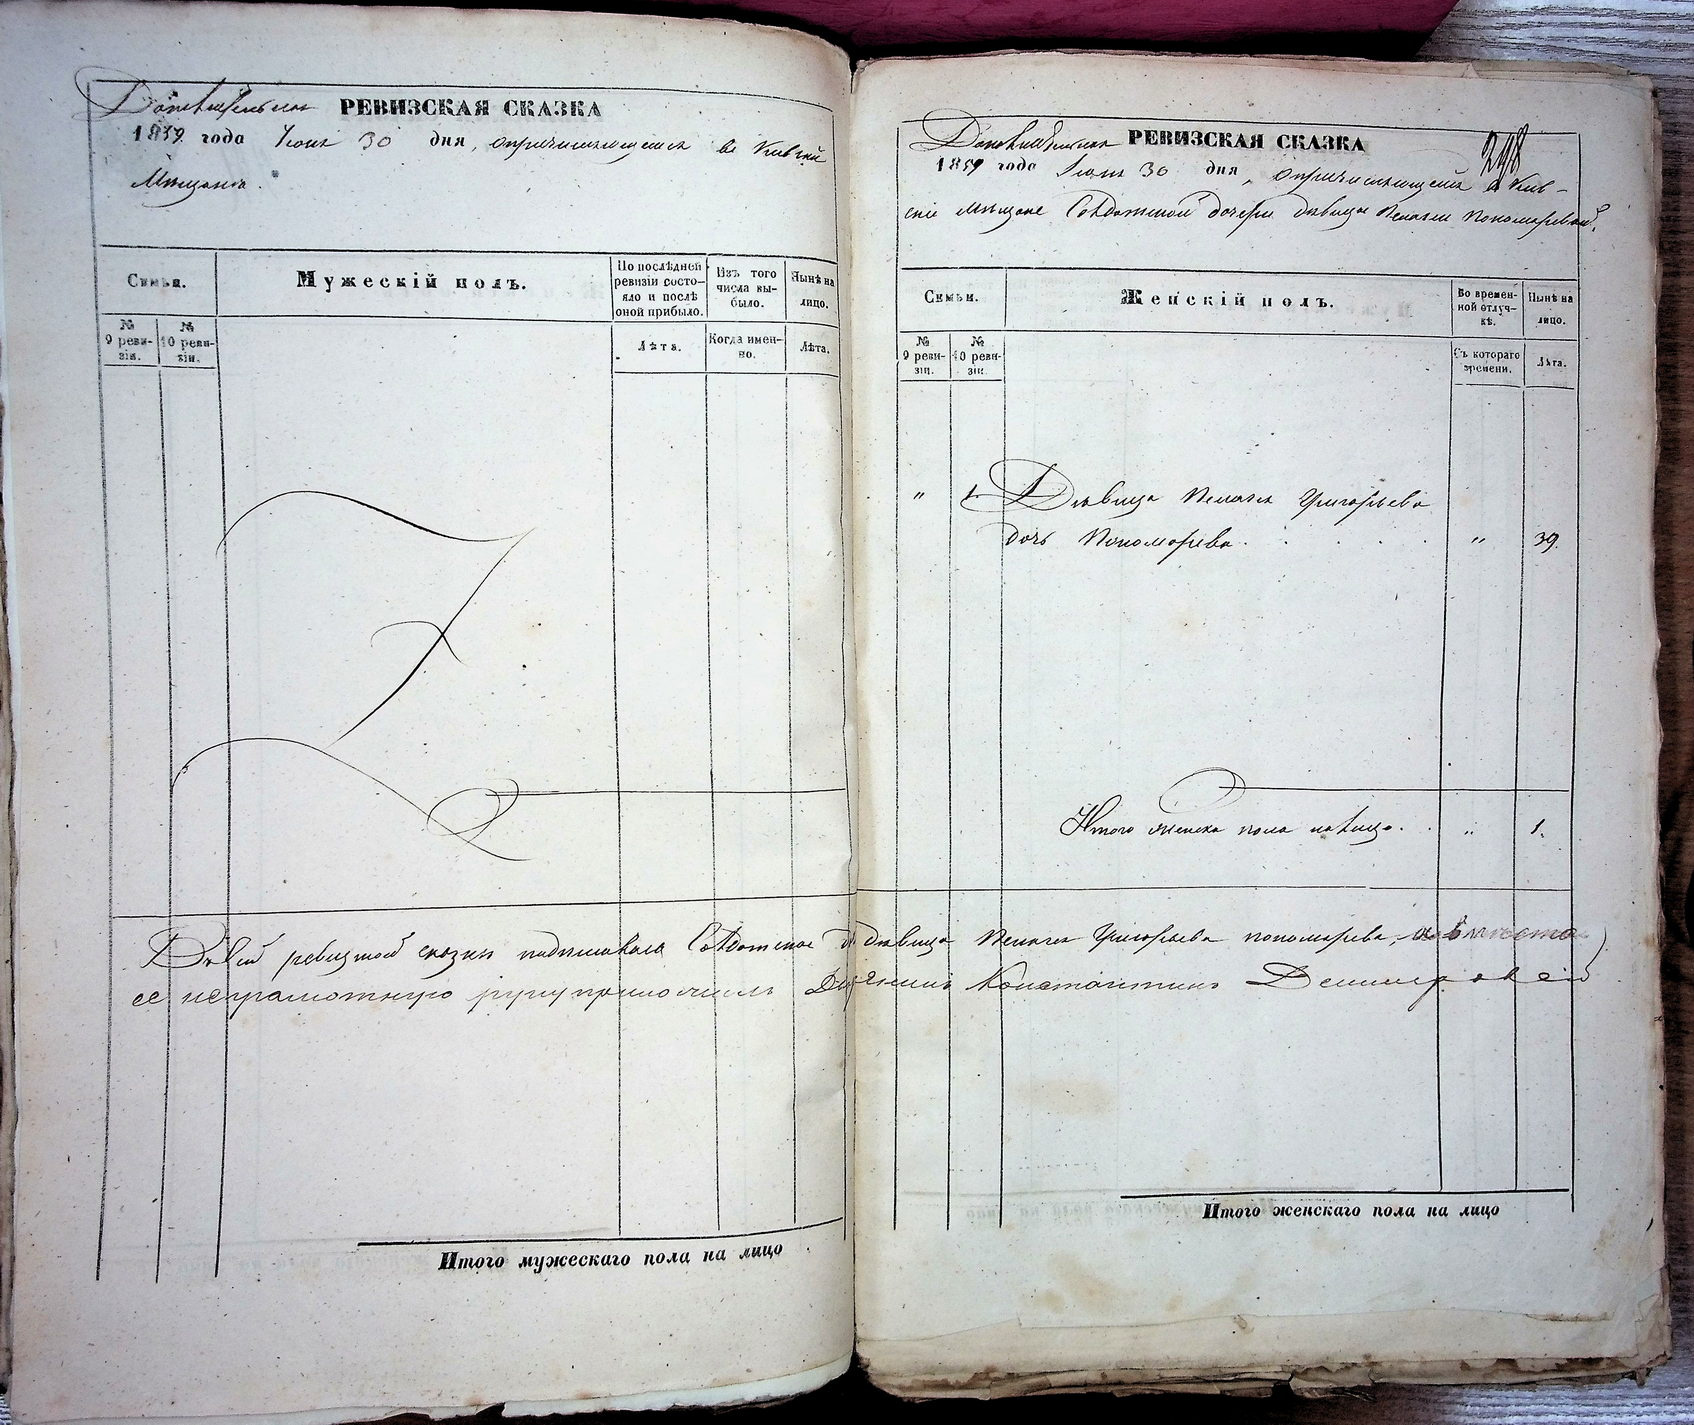 Дополнительная РЕВИЗСКАЯ СКАЗКА
1859 года Іюня 30 дня, о причисляющемся въ Кіевскіе
Мѣщане.
Семьи.
Мужескій полъ.
По послѣдней ревизіи состо-
яло и послѣ оной прибыло.
Изъ того числа вы-
было.
Нынѣ на лицо.
№ 9 реви-
зіи.
№ 10 реви-
зіи.
Лѣта.
Когда имен-
но.
Лѣта.
Итого мужескаго пола на лицо
Дополнительная РЕВИЗСКАЯ СКАЗКА
298
1859 года Іюня 30 дня, о причисляющейся въ Кіев-
скіе мѣщане Солдатской дочери дѣвицы Пелагеи Пономаревой.
Семьи.
Женскій полъ.
Во времен-
ной отлуч-
кѣ.
Нынѣ на лицо.
№ 9 реви-
зіи.
№ 10 реви-
зіи.
Съ котораго времени.
Лѣта.
" 1 Дѣвица Пелагея Григорьева
дочь Пономарева . . . . " 39.
Итого женска пола налицо . . " 1.
Итого женскаго пола на лицо
Къ сей ревизской сказки подписовала Солдатская д. дѣвица Пелагея Григорьева Пономарева, а вмѣсто
ее неграмотную руку приложилъ Константинъ